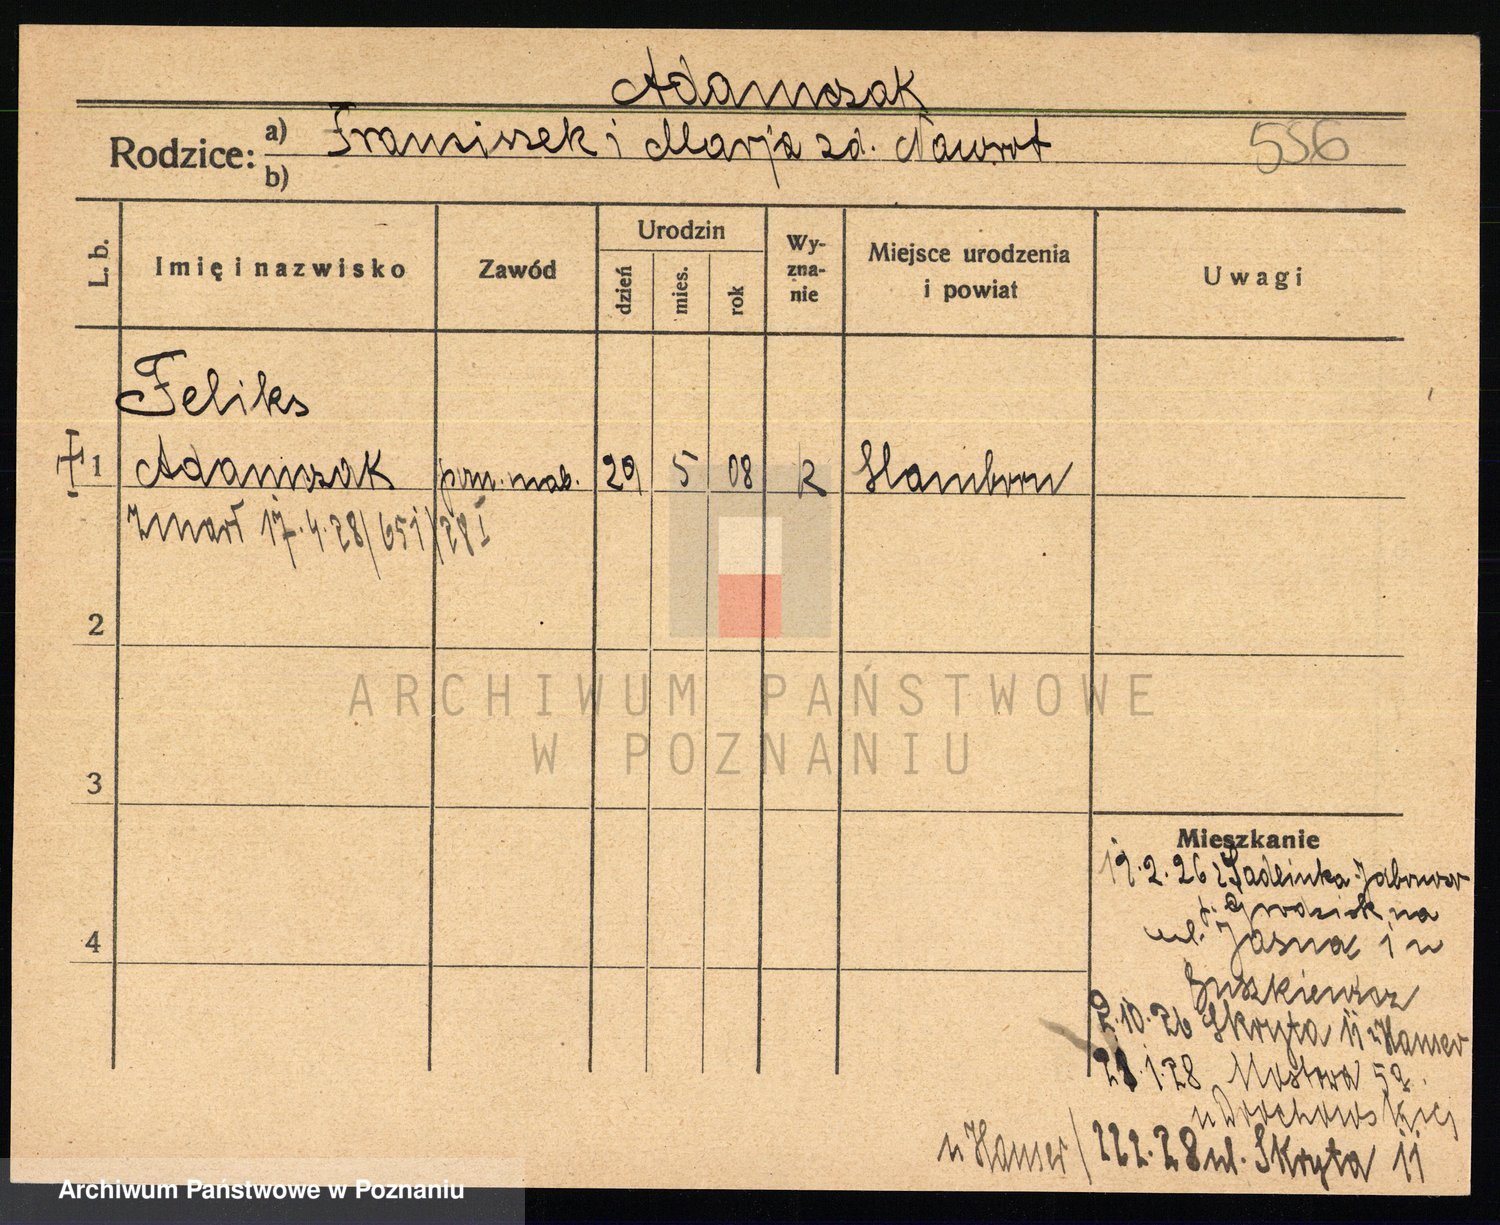 Adamczak
Rodzice: a) Franciszek i Marja zd. Nawrot
b)
556
L. b.
Imię i nazwisko
Zawód
Urodzin
dzień
mies.
rok
Wy-
zna-
nie
Miejsce urodzenia
i powiat
Uwagi
Feliks
1 Adamczak pom. mab. 29 5 08 R Hamborn
zmarł 17.4.28/651/28 I
2
3
4
ARCHIWUM PAŃSTWOWE
W POZNANIU
Mieszkanie
19.2.26 z Sadlinka
p. Grodzisk na
ul. Jasną 1 u
2.10.26 Skryta 11 u Hauser
1.28 Mostowa
u
u Hauser/ 22 2.28 ul. Skryta 11
Archiwum Państwowe w Poznaniu